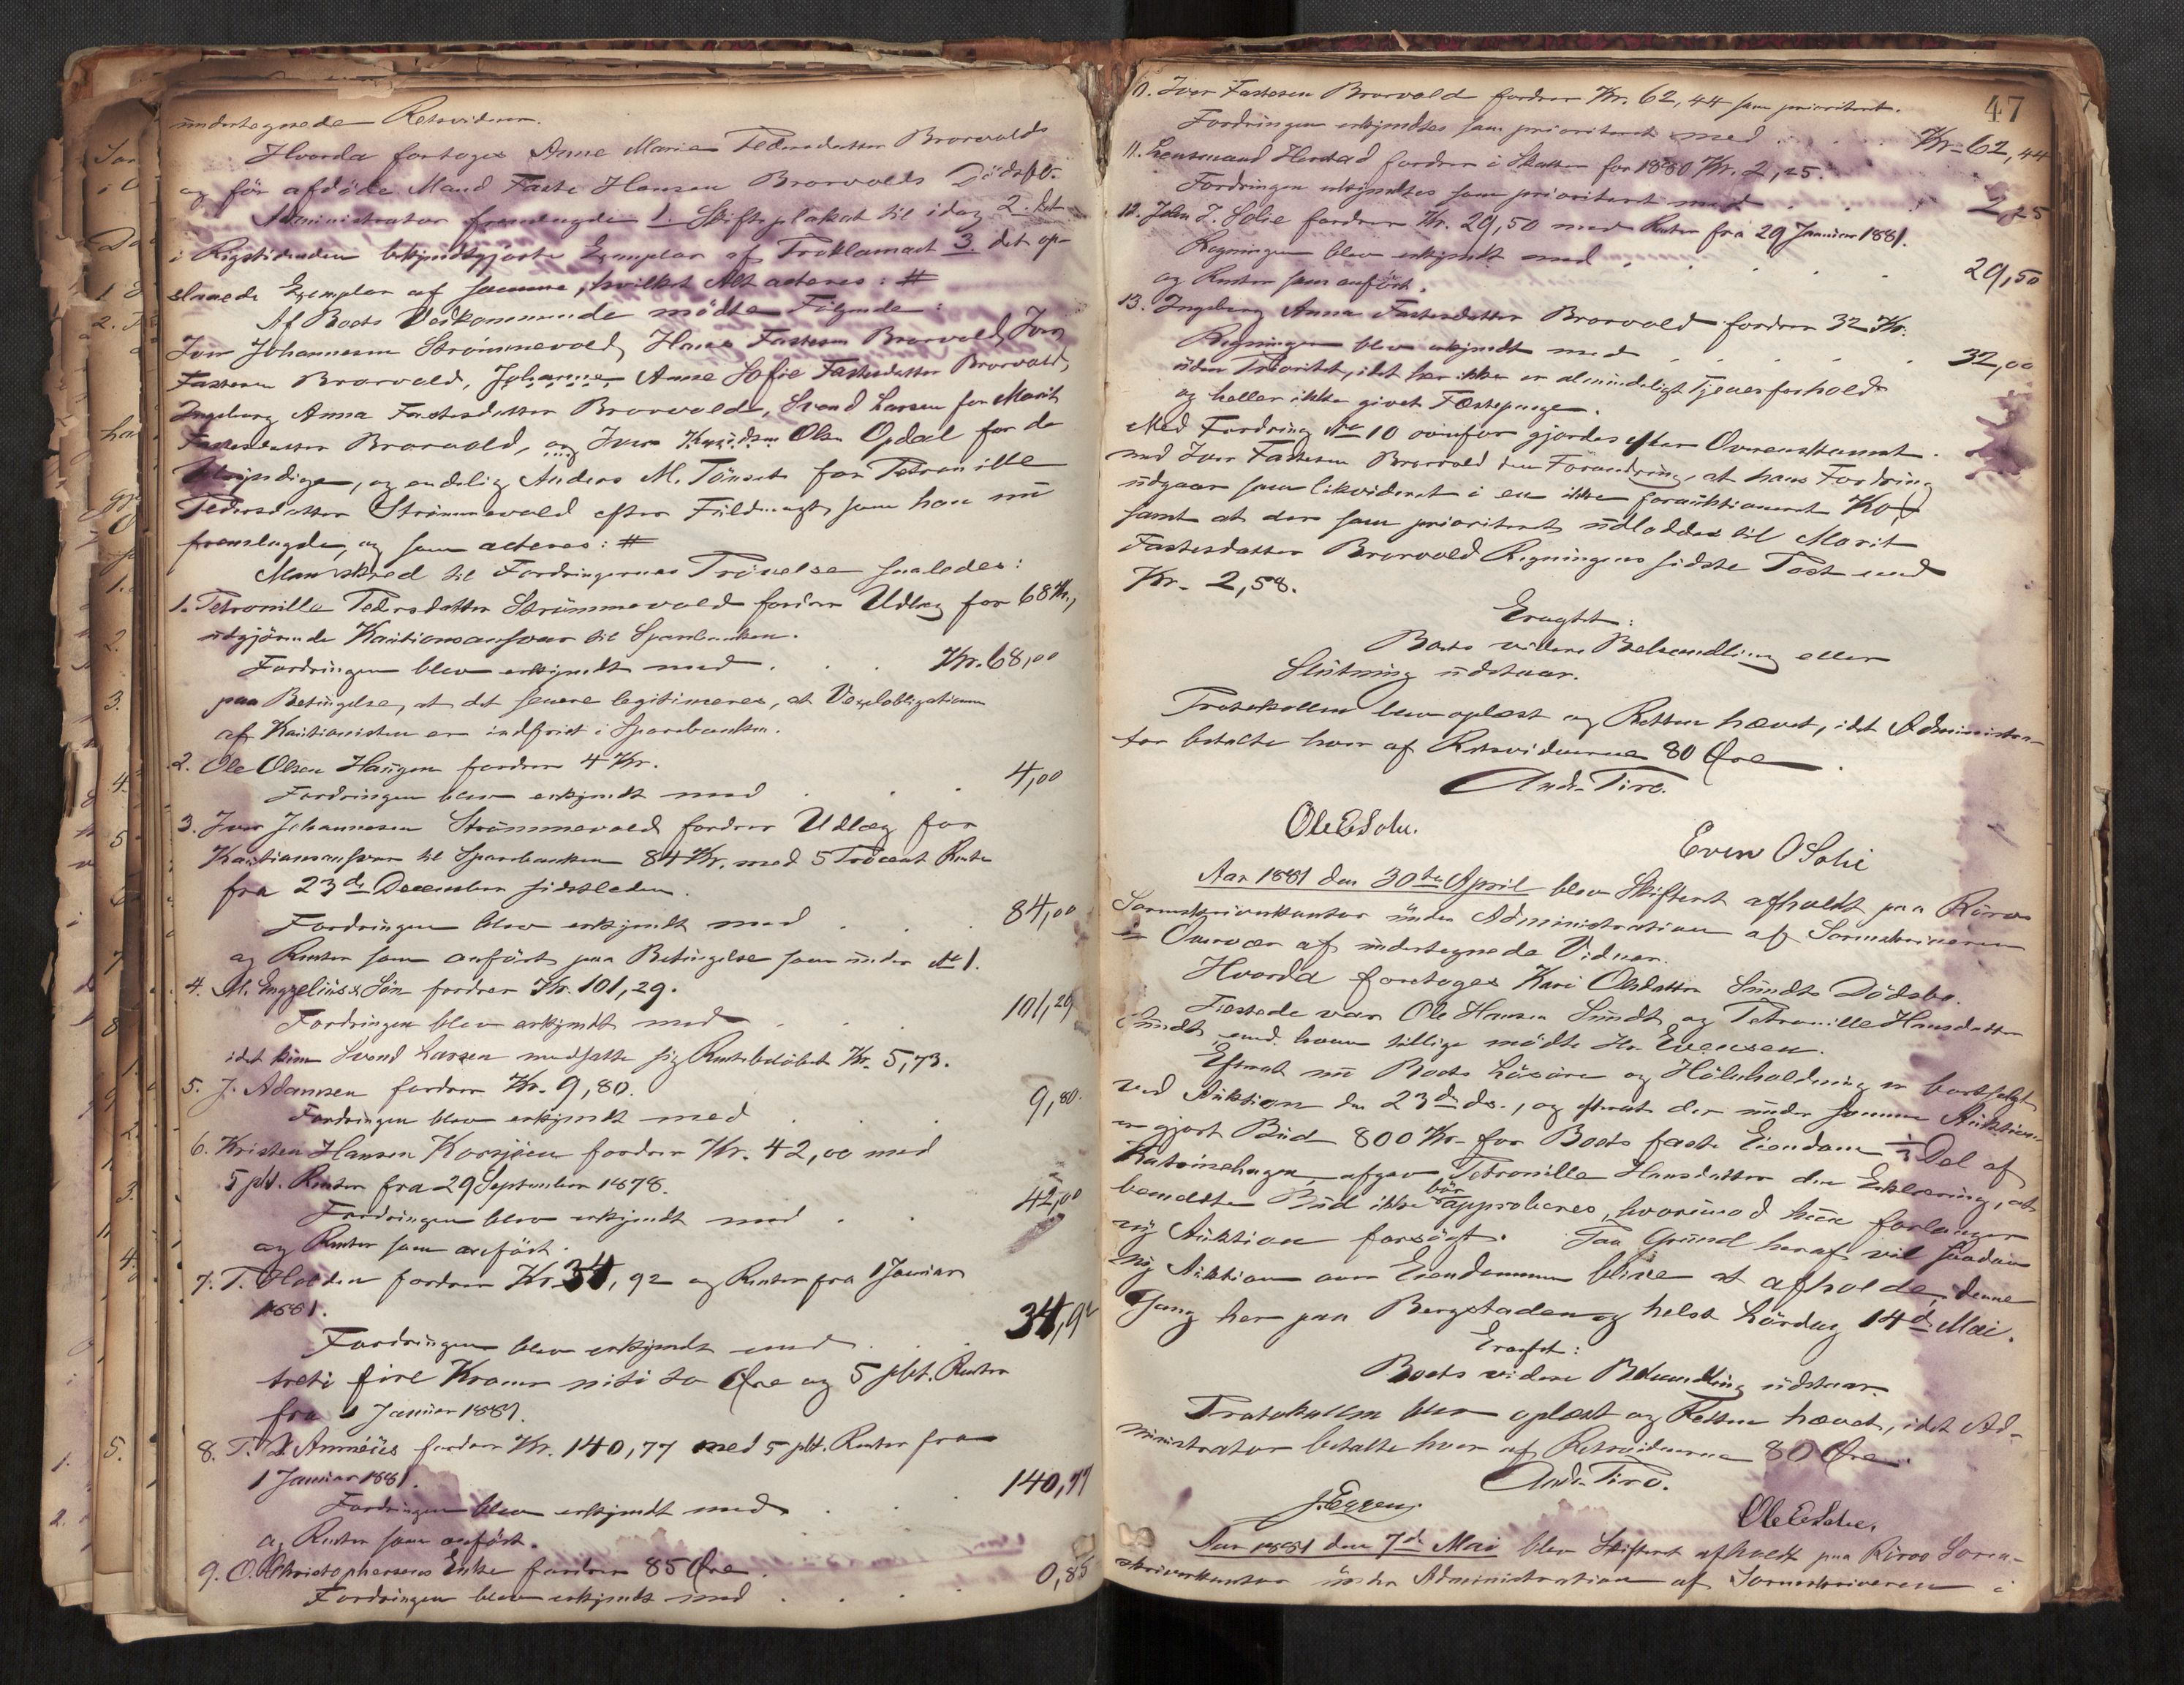 undertegnede Retsvidner.
Hvorda foretoges Anne Marie Pedersdatter Brorvolds
og før afdøde Mand Faste Hansen Brorvolds Dødsbo.
Administrator fremlagde 1. Skifteplakat til idag 2. det
i Rigstidenden bekjendtgjorte Exemplar af Proklamaet 3. det op-
slaaede Exemplar af samme, hvilket Alt acteres: #
Af Boets Vedkommende mødte Følgende:
Iver Johannesen Strömmevold, Hans Fastesen Brorvold, Iver
Fastesen Brorvold, Johanne Anne Sofie Fastesdatter Brorvold,
Ingeborg Anna Fastesdatter Brorvold, Svend Larsen for Marit
Fastesdatter Brorvold, og Iver Olsen Opdal for de
Umyndige, og endelig Anders M. Tönset for Petronille
Pedersdatter Strömmevold efter Fuldmagt, som han nu
fremlagde, og som acteres: #
Man skred til Fordringernes Prövelse saaledes:
1. Petronille Pedersdatter Strömmevold fordrer Udlæg for 68 Kr.,
udgjörende Kautionsansvar til Sparebanken.
Fordringen blev erkjendt med . . . Kr. 68,00
paa Betingelse, at det senere legitimeres, at Vexelobligationen
af Kautionisten er indfriet i Sparebanken.
2. Ole Olsen Haugen fordrer 4 Kr.
Fordringen blev erkjendt med . . . 4,00
3. Iver Johannesen Strömmevold fordrer Udlæg for
Kautionsansvar til Sparebanken 84 Kr. med 5 Procent Rente
fra 23de December sidstleden.
Fordringen blev erkjendt med . . . 84,00
og Renter som anfört paa Betingelse som under No 1.
4. M. Engzelius & Sön fordrer Kr. 101,29.
Fordringen blev erkjendt med . . . 101,29
idet kun Svend Larsen modsatte sig Rentebelöbet Kr. 5,73.
5. J. Adamsen fordrer Kr. 9,80.
Fordringen blev erkjendt med . . . 9,80.
6. Kristen Hansen Korssjöen fordrer Kr. 42,00 med
5 pCt. Renter fra 29 September 1878.
Fordringen blev erkjendt med . . 42,00
og Renter som anfört.
7. T. Holden fordrer Kr. 34,92 og Renter fra 1 Januar
1881.
Fordringen blev erkjendt med . . . 34,92
treti fire Kroner niti to Øre og 5 pCt. Renter
fra 1 Januar 1881.
8. T. Amnéus fordrer Kr. 140,77 med 5 pCt. Renter fra
1 Januar 1881.
Fordringen blev erkjendt med . . . 140,77
og Renter som anfört.
9. O. Christophersens Enke fordrer 85 Øre.
Fordringen blev erkjendt med . . . 0,85
47
10. Iver Fastesen Brorvold fordrer Kr. 62,44 som prioriteret.
Fordringen erkjendtes som prioriteret med . . . Kr. 62,44
11. Lensmand Herstad fordrer i Skatter for 1880 Kr. 2,25.
Fordringen erkjendtes som prioriteret med . . . 2,25
12. John J. Solie fordrer Kr. 29,50 med Renter fra 29 Januar 1881.
Regningen blev erkjendt med . . . 29,50
og Renter som anfört.
13. Ingeborg Anna Fastesdatter Brorvold fordrer 32 Kr.
Regningen blev erkjendt med . . . 32,00
uden Prioritet, idet her ikke er almindeligt Tjenesforhold
og heller ikke givet Fæstepenge.
Med Fordring No 10 ovenfor gjordes efter Overenskomst
med Iver Fastesen Brorvold den Forandring, at hans Fordring
udgaar som likvideret i en ikke forauktioneret Ko,
samt at der som prioriteret udloddes til Marit
Fastesdatter Brorvold Regningens sidste Post med
Kr. 2,58.
Eragtet:
Boets videre Behandling eller
Slutning udstaar.
Protokollen blev oplæst og Retten hævet, idet Administra-
tor betalte hver af Retsvidnerne 80 Øre.
Andr. Tiro.
Ole E Solu.
Even O Solie
Aar 1881 den 30te April blev Skifteret afholdt paa Röros
Sorenskriverkontor under Administration af Sorenskriveren
i Overvær af undertegnede Vidner.
Hvorda foretoges Kari Olsdatter Sundts Dödsbo.
Tilstede var Ole Hansen Sundt og Petronille Hansdatter
Sundt, med hvem tillige mödte Hr. Evensen.
Efterat nu Boets Lösöre og Höbeholdning er bortsolgt
ved Auktion den 23de ds., og efterat der under samme Auktion
er gjort Bud 800 Kr. for Boets faste Eiendom Del af
Katrinehagen, afgav Petronille Hansdatter den Erklæring, at
bemeldte Bud ikke bör approberes, hvorimod hun forlanger
ny Auktion forsögt. Paa Grund heraf vil saadan
ny Auktion over Eiendommen blive at afholde, denne
Gang her paa Bergstaden og helst Lördag 14de Mai.
Eragtet:
Boets videre Behandling udstaar.
Protokollen blev oplæst og Retten hævet, idet Ad-
ministrator betalte hver af Retsvidnerne 80 Øre.
Andr. Tiro.
J. Eggen.
Ole E Solu.
Aar 1881 den 7de Mai blev Skifteret afholdt paa Röros Soren-
skriverkontor under Administration af Sorenskriveren i